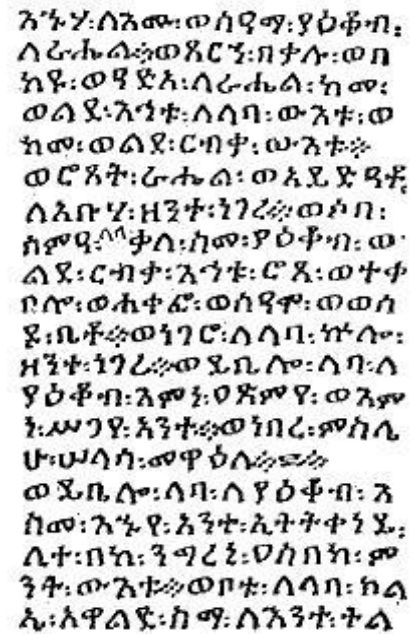 እኁሃ፡ለእሙ፡ወሰዓማ፡ያዕቆብ፡
ለራሔል፨ወጸርኀ፡በቃሉ፡ወበ
ከየ፡ወዓይድአ፡ለራሔል፡ከመ፡
ወልደ፡እኅቱ፡ለላባ፡ውእቱ፡ወ
ከመ፡ወልደ፡ርብቃ፡ውእቱ፨
ወሮጸት፡ራሔል፡ወአይድዓቶ፡
ለአቡሃ፡ዘንተ፡ነገረ፨ወሶበ፡
ሰምዓ፡ቃለ፡ስመ፡ያዕቆብ፡ወ
ልደ፡ርብቃ፡እኅቱ፡ሮጸ፡ወተቀ
በሎ፡ወሐቀፎ፡ወሰዓሞ፡ወወሰ
ዶ፡ቤቶ፨ወነገሮ፡ለላባ፡ኵሎ፡
ዘንተ፡ነገረ፨ወይቤሎ፡ላባ፡ለ
ያዕቆብ፡እምነ፡ዐጽምየ፡ወእም
ነ፡ሥጋየ፡አንተ፨ወነበረ፡ምስሌ
ሁ፡ሠላሳ፡መዋዕለ፨፨
ወይቤሎ፡ላባ፡ለያዕቆብ፡እ
ስመ፡እኁየ፡አንተ፡ኢትትቀነይ፡
ሊተ፡በከ፡ንግረኒ፡ዐስበከ፡ም
ንት፡ውእቱ፨ወቦቱ፡ለላባ፡ክል
ኤ፡አዋልድ፡ስማ፡ለእንተ፡ትል